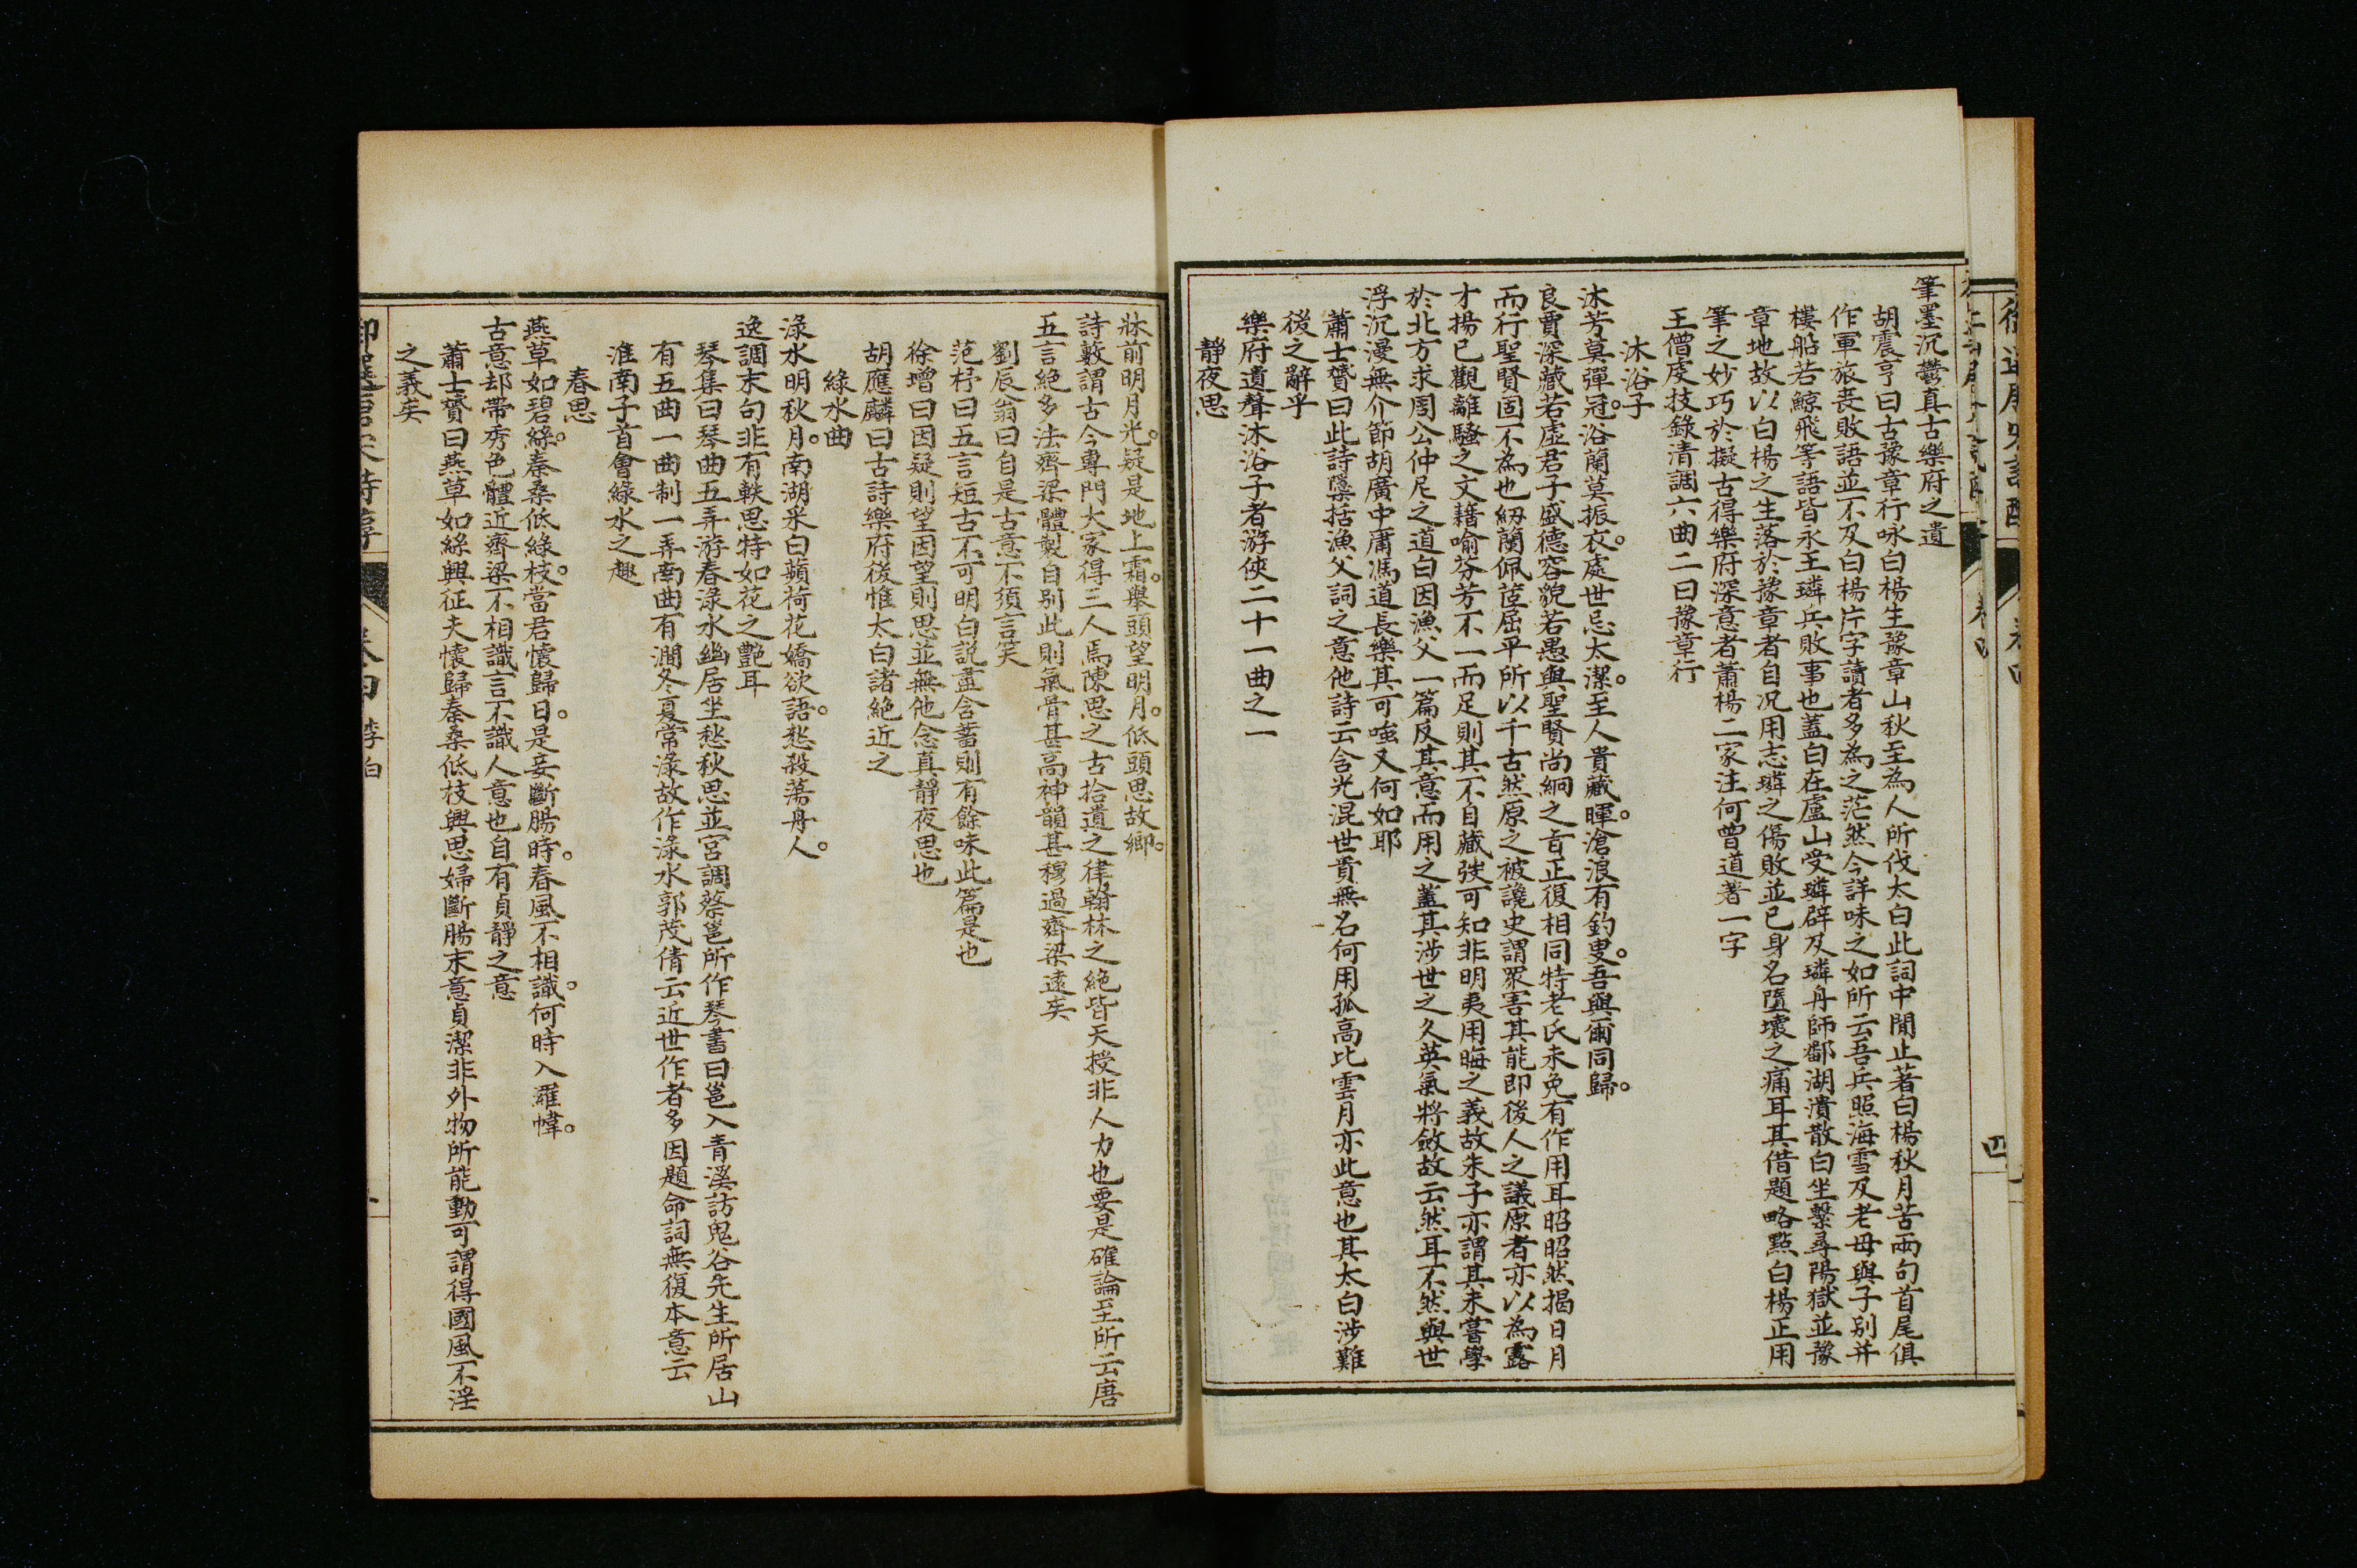 筆墨沉鬱真古樂府之遺
胡震亨曰古豫章行咏白楊生豫章山秋至為人所伐太白此詞中間止著白楊秋月苦兩句首尾俱
作軍旅喪敗語並不及白楊片字讀者多為之茫然今詳味之如所云吾兵照海雪及老母與子別并
樓船若鯨飛等語皆永王璘兵敗事也蓋白在廬山受璘辟及璘舟師鄱湖潰散白坐繫尋陽獄並豫
章地故以白楊之生落於豫章者自况用志璘之傷敗並已身名墮壞之痛耳其借題略點白楊正用
筆之妙巧於擬古得樂府深意者蕭楊二家注何曾道著一字
王僧虔技錄清調六曲二曰豫章行
沐浴子
沐芳莫彈冠。浴蘭莫振衣。處世忌太潔。至人貴藏暉。滄浪有釣叟。吾與爾同歸。
良賈深藏若虛君子盛德容貌若愚與聖賢尚絅之旨正復相同特老氏未免有作用耳昭昭然揭日月
而行聖賢固不為也紉蘭佩茝屈平所以千古然原之被讒史謂眾害其能即後人之議原者亦以為露
才揚已觀離騷之文藉喻芬芳不一而足則其不自藏弢可知非明夷用晦之義故朱子亦謂其未嘗學
於北方求周公仲尼之道白因漁父一篇反其意而用之蓋其涉世之久英氣將斂故云然耳不然與世
浮沉漫無介節胡廣中庸馮道長樂其可嗤又何如耶
蕭士贇曰此詩檃括漁父詞之意他詩云含光混世貴無名何用孤高比雲月亦此意也其太白涉難
後之辭乎
樂府遺聲沐浴子者游俠二十一曲之一
靜夜思
牀前明月光。疑是地上霜。舉頭望明月。低頭思故鄉。
詩藪謂古今專門大家得三人焉陳思之古拾遺之律翰林之絕皆天授非人力也要是確論至所云唐
五言絕多法齊梁體製自別此則氣骨甚高神韻甚穆過齊梁遠矣
劉辰翁曰自是古意不須言笑
范梈曰五言短古不可明白說盡含蓄則有餘味此篇是也
徐增曰因疑則望因望則思並無他念真靜夜思也
胡應麟曰古詩樂府後惟太白諸絕近之
綠水曲
淥水明秋月。南湖采白蘋荷花嬌欲語。愁殺蕩舟人。
逸調末句非有軼思特如花之艷耳
琴集曰琴曲五弄游春淥水幽居坐愁秋思並宮調蔡邕所作琴書曰邕入青溪訪鬼谷先生所居山
有五曲一曲制一弄南曲有澗冬夏常淥故作淥水郭茂倩云近世作者多因題命詞無復本意云
淮南子首會綠水之趣
春思
燕草如碧絲。秦桑低綠枝。當君懷歸日。是妾斷腸時。春風不相識。何時入羅幃。
古意却帶秀色體近齊梁不相識言不識人意也自有貞靜之意
蕭士贇曰燕草如絲興征夫懷歸秦桑低枝興思婦斷腸末意貞潔非外物所能動可謂得國風不淫
之義矣
御選唐宋詩醇 卷四 李白